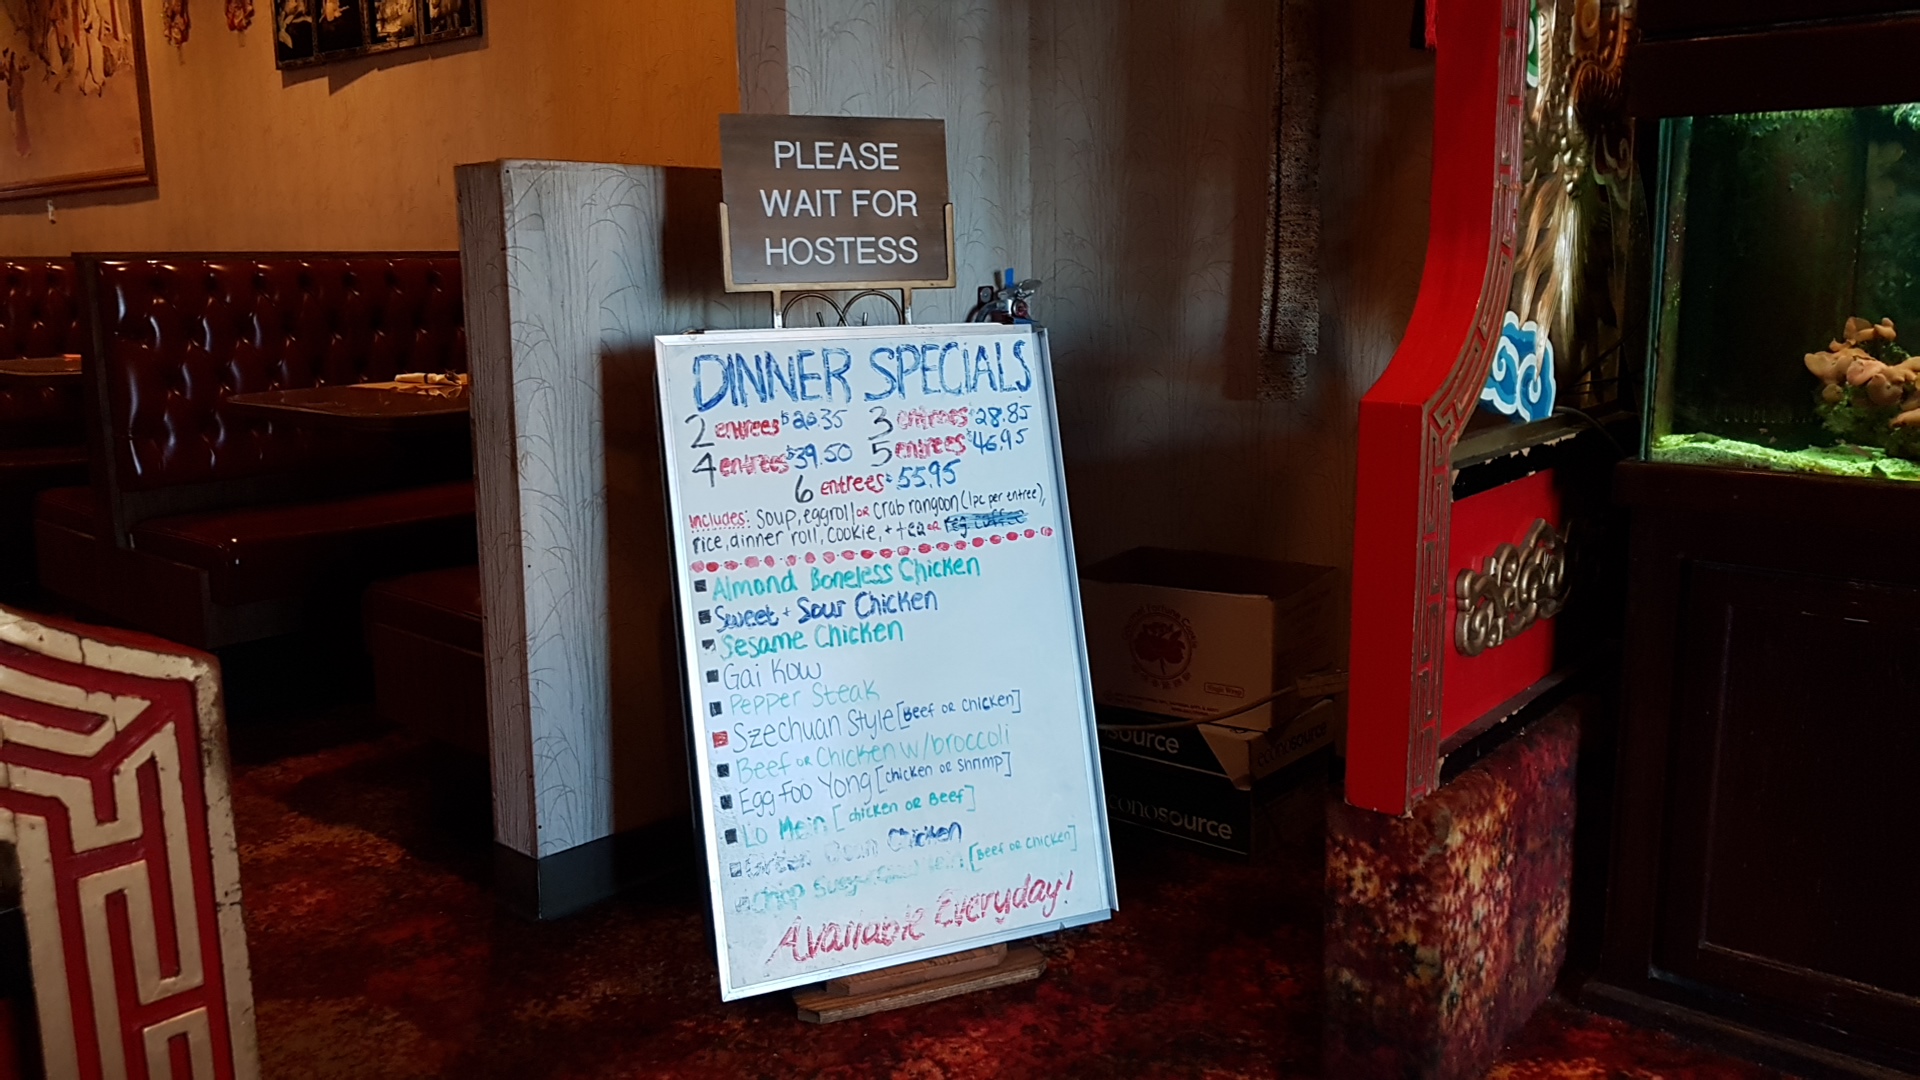 PLEASE
WAIT FOR
HOSTESS
DINNER SPECIALS
2 entrees $20.35 3 entrees $28.85
4 entrees $39.50 5 entrees $46.95
6 entrees $55.95
includes: soup, eggroll OR crab rangoon (1pc per entree),
rice, dinner roll, cookie, + tea OR
Almond Boneless Chicken
Sweet + Sour Chicken
Sesame Chicken
Gai Kow
Pepper Steak
Szechuan Style [Beef OR Chicken]
Beef OR Chicken w/broccoli
Egg Foo Yong [chicken OR shrimp]
Lo Mein [chicken OR Beef]
Chicken
[Beef OR Chicken]
Available Everyday!
source
conosource